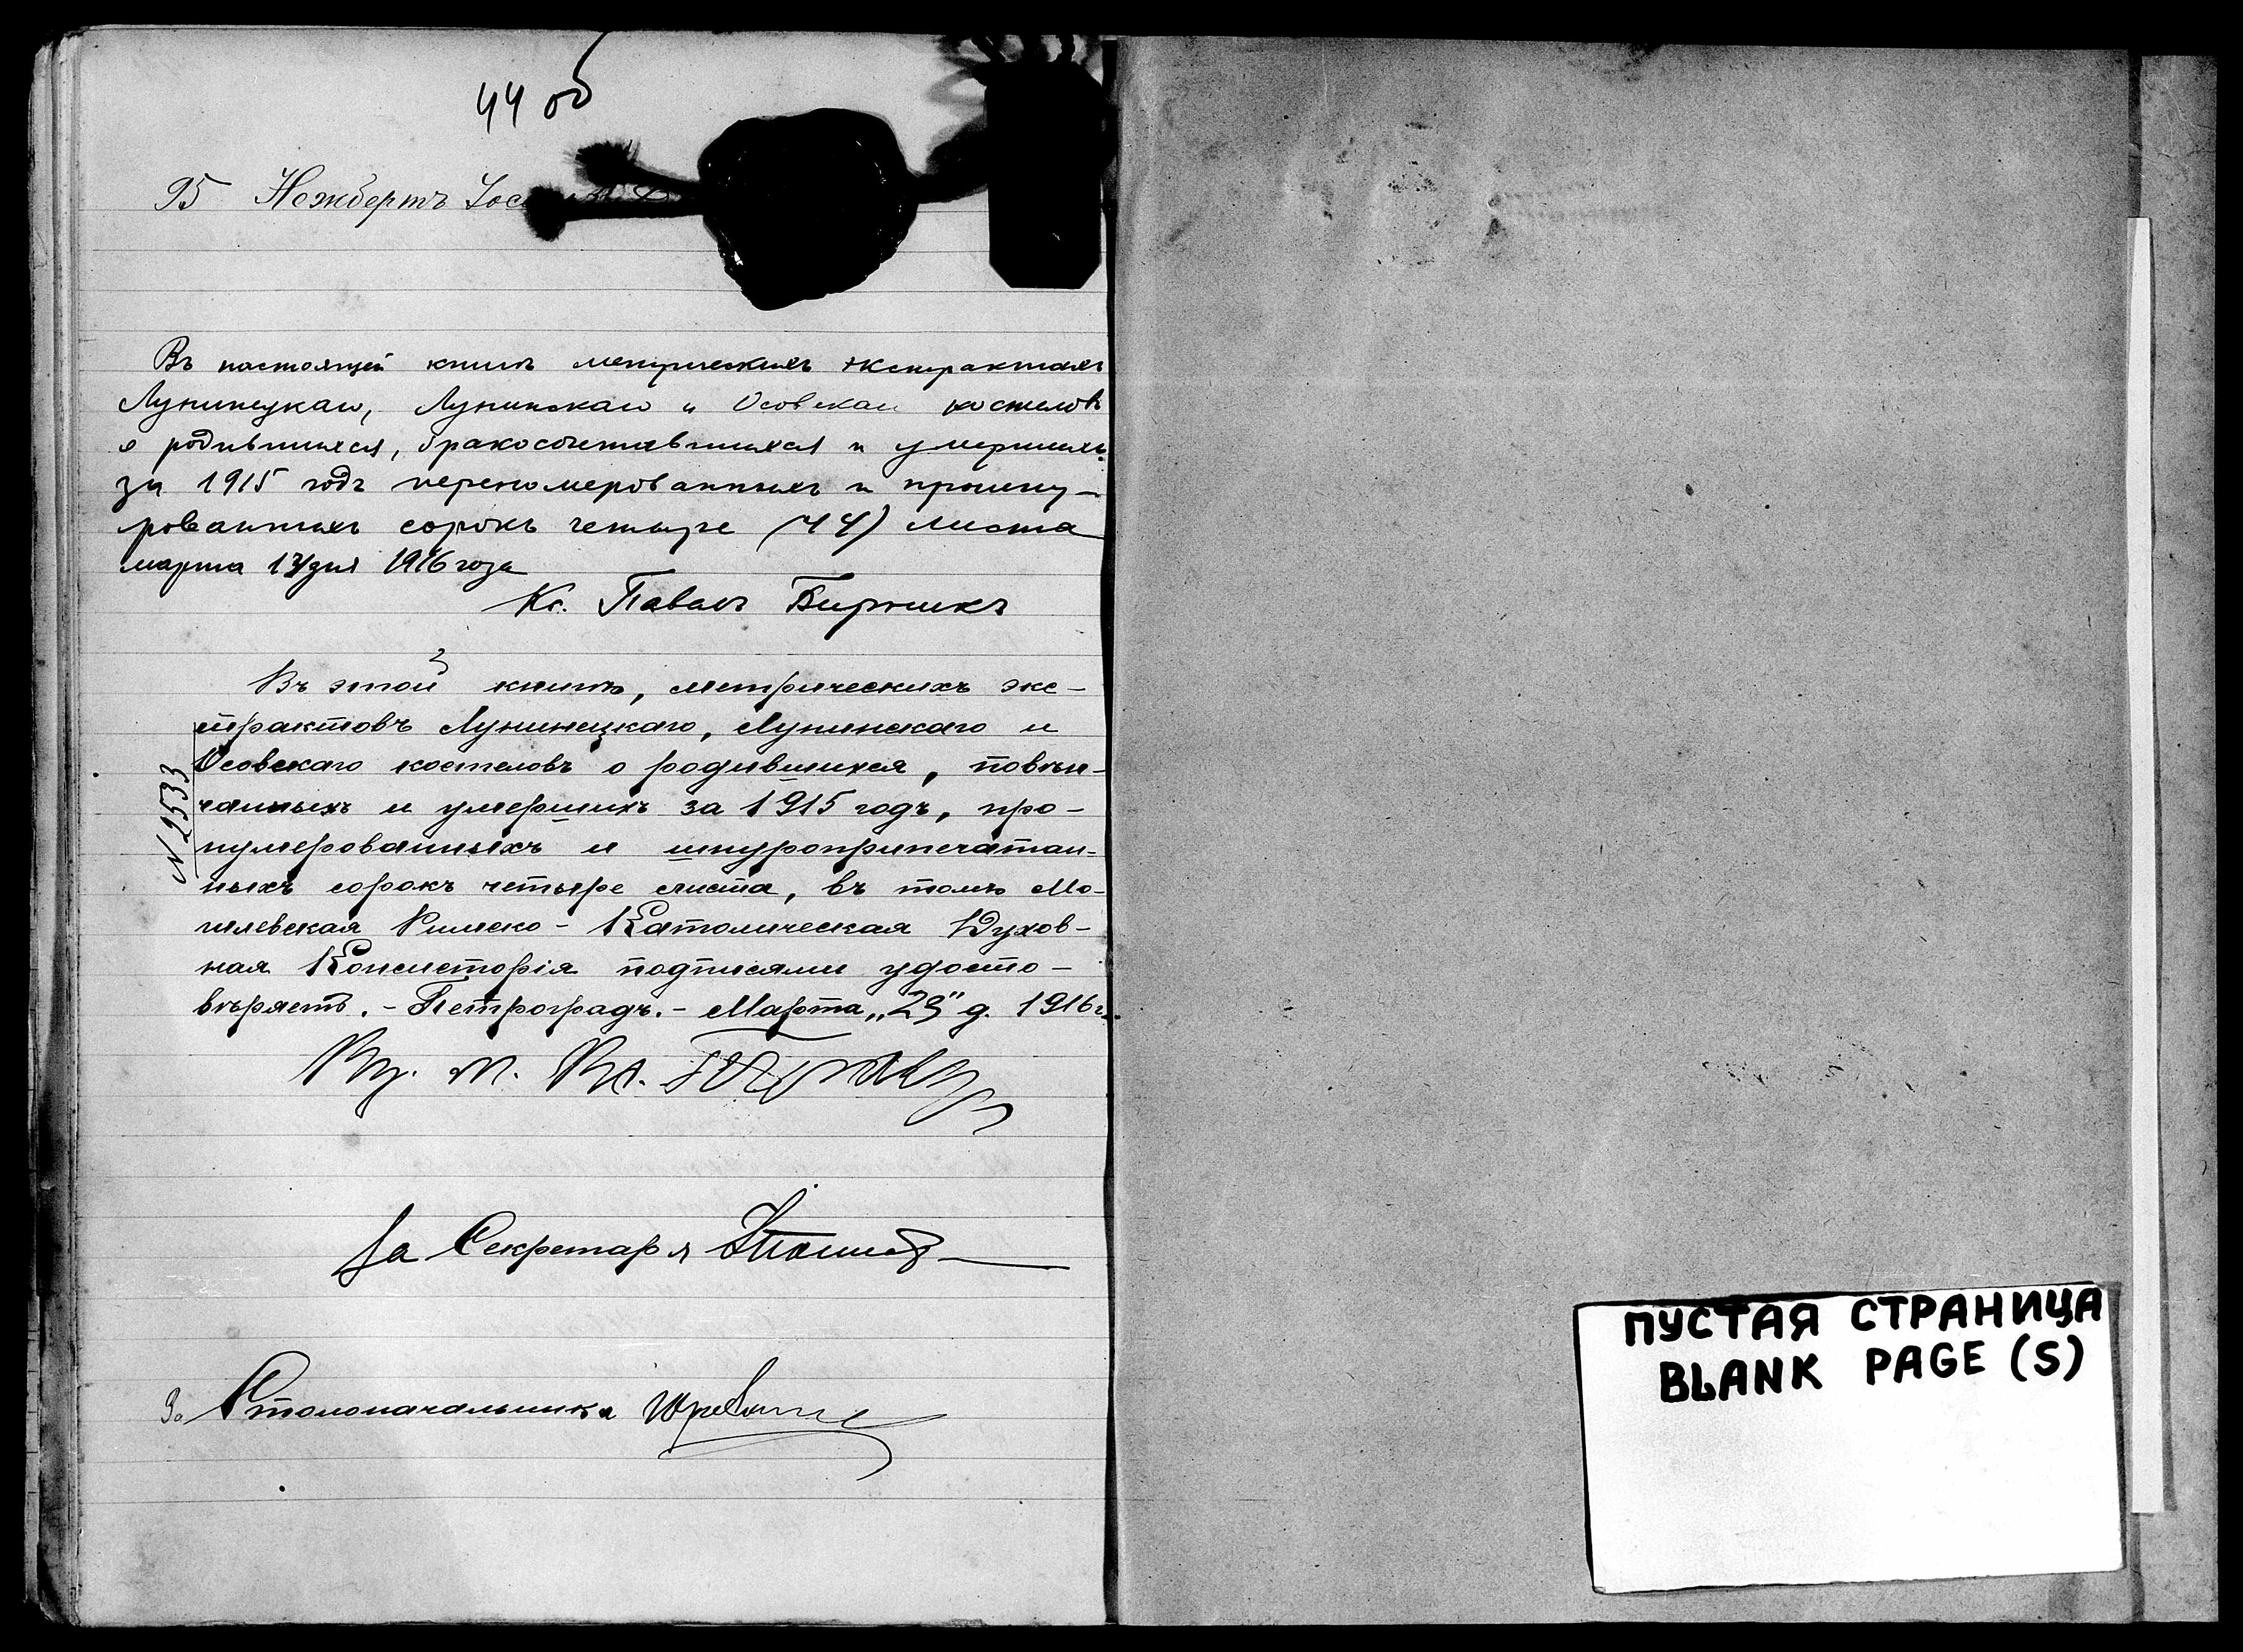 44 об
95 Нежбертъ
Въ настоящей книгѣ метрическихъ экстрактахъ
Лунинецкаго, Лунинскаго и Осовскаго костеловъ
о родившихся, бракосочетавшихся и умершихъ
за 1915 годъ перенумерованныхъ и прошну-
рованныхъ сорокъ четыре (44) листа
марта дня 1916 года
Кс. Павелъ
Въ этой книгѣ, метрическихъ экс-
трактовъ Лунинецкаго, Лунинскаго и
Осовскаго костеловъ о родившихся, повѣн-
чанныхъ и умершихъ за 1915 годъ, про-
нумерованныхъ и шнуроприпечатан-
ныхъ сорокъ четыре листа, въ томъ Мо-
гилевская Римско-Католическая Духов-
ная Консисторія подписями удосто-
вѣряетъ. - Петроградъ. - Марта „29" д. 1916 г.
N 2533
За Секретаря
За Столоначальника
ПУСТАЯ СТРАНИЦА
BLANK PAGE (S)